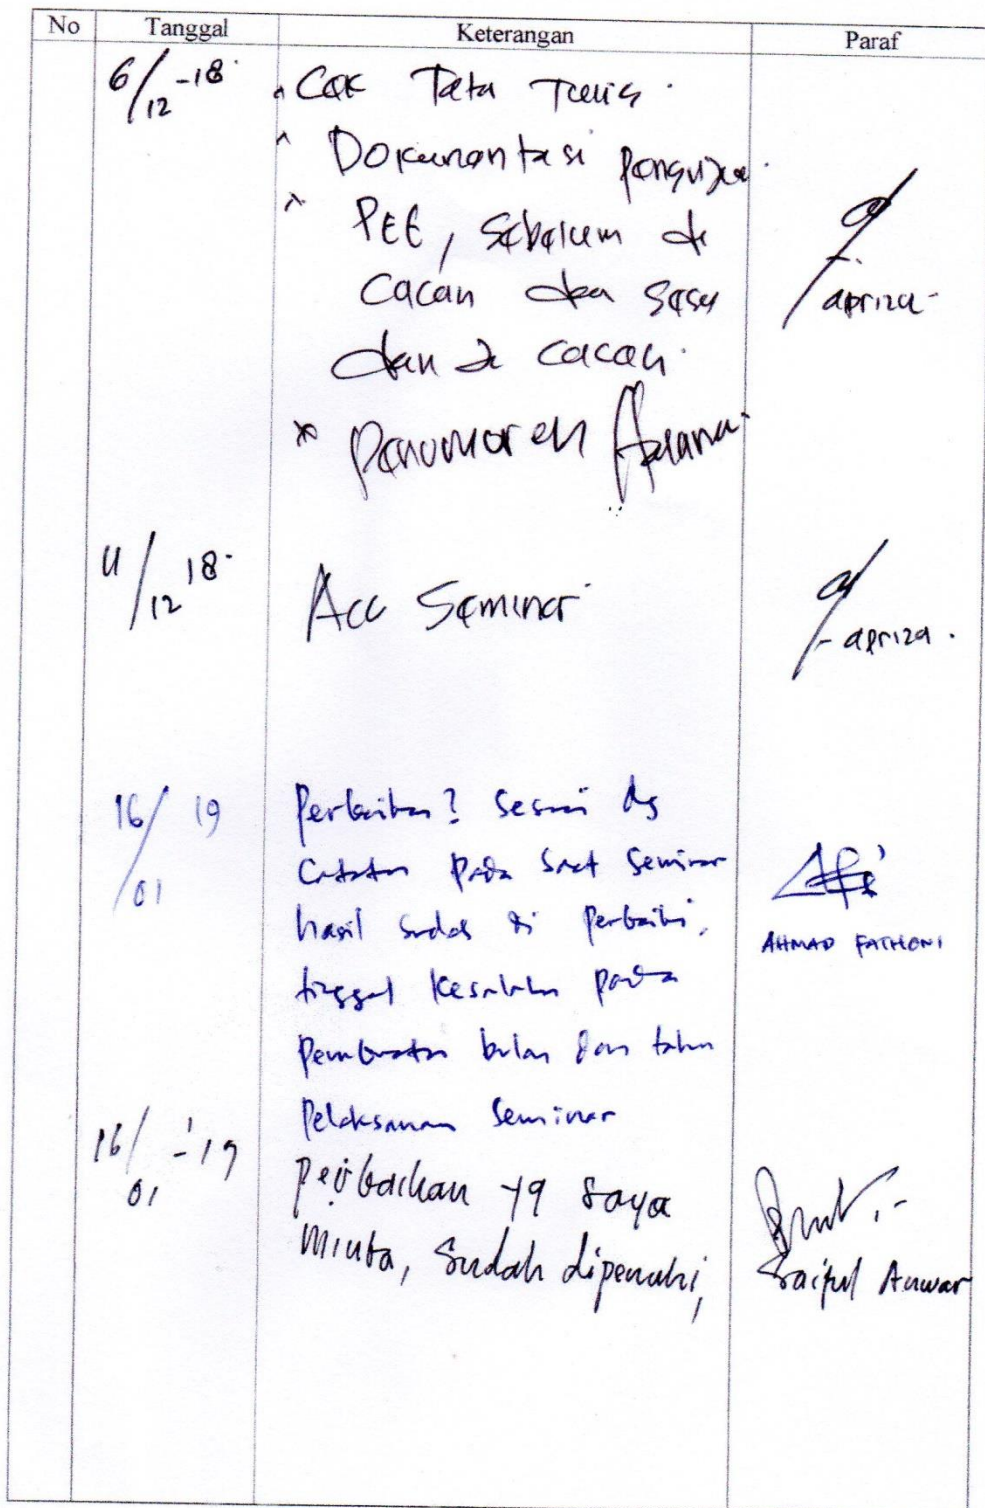 No Tanggal Keterangan Paraf
6/12 -18
Cek Tata Tulis
Dokumentasi
PEE, Sebelum di
cacah dan sesu
dah di cacah
* Penomoran
apriza
11/12 18
Acc Seminar
apriza
16/01 19
Perbaikan? sesuai dg
Catatan pada saat seminar
hasil sudah di perbaiki,
tinggal kesalahan pada
pembuatan bulan dan tahun
pelaksanaan seminar
AHMAD FATHONI
16/01 -'19
perbaikan yg saya
minta, sudah dipenuhi,
Saiful Anwar